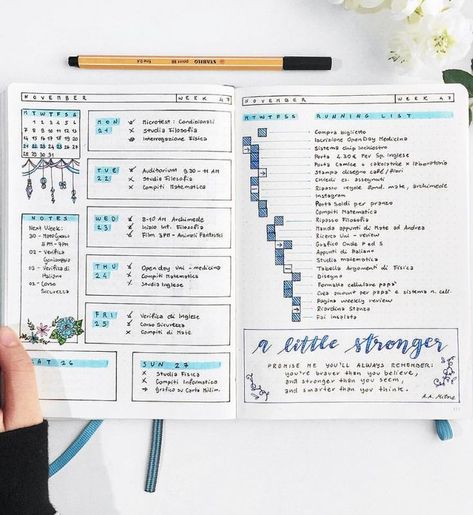 STABILO
NOVEMBER
WEEK 47
M T W T F S S
1 2 3 4 5 6
7 8 9 10 11 12 13
14 15 16 17 18 19 20
21 22 23 24 25 26 27
28 29 30
NOTES
Next Week:
02 - Verifica
02 - Verifica di
Italiano
02 - Corso
Sicurezza
MON
21
Microtest: Condizionali
Studia Filosofia
Interrogazione Fisica
TUE
22
Auditorium 9.30 - 11 AM
Studia Filosofia
Compiti Matematica
WED
23
8-10 AM Archimede
Inizio Int. Filosofia
Film 3PM - Animali Fantastici
THU
24
Open day Uni - medicina
Compiti matematica
Studia Inglese
FRI
25
Verifica di Inglese
Corso Sicurezza
Compiti di Mate
SAT 26
SUN 27
Studia Fisica
Compiti Informatica
Grafico su Carta Milim.
NOVEMBER
WEEK 47
M T W T F S S
RUNNING LIST
Compra biglietto
Iscrizione OpenDay Medicina
Sistema chip inchiostro
Porta 4.30€ Per Sp. Inglese
Porta camice + calcolatrice x laboratorio
Stampa disegno café/fiori
Chiedi es. assegnati
Ripasso regole Cond. mate, archimede
Instagram
Porta Soldi per pranzo
Compiti Matematica
Ripasso Filosofia
Manda appunti di Mate ad Andrea
Ricerca Uni - review
Grafico Onde P ed S
Appunti di Italiano
Studia matematica
Tabella Argomenti di Fisica
Disegno
Formatta cellulare papà
Crea account per papà e sistema n. cell.
Pagina weekly review
Riordina Stanza
Fai insalata
a little stronger
PROMISE ME YOU'LL ALWAYS REMEMBER:
you're braver than you believe,
and stronger than you seem,
and smarter than you think.
A.A. Milne